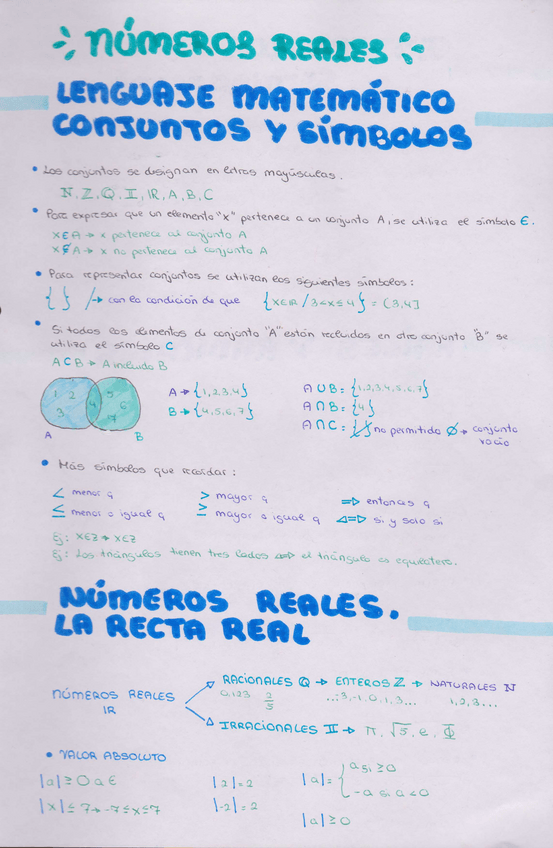 NÚMEROS REALES
LENGUAJE MATEMÁTICO
CONJUNTOS Y SÍMBOLOS
• Los conjuntos se designan en letras mayúsculas.
N, Z, Q, II, IR, A, B, C
• Para expresar que un elemento "x" pertenece a un conjunto A, se utiliza el símbolo ∈.
x∈A → x pertenece al conjunto A
x∉A → x no pertenece al conjunto A
• Para representar conjuntos se utilizan los siguientes símbolos:
{ } / → con la condición de que {x∈IR / 3<x≤4} = (3,4]
• Si todos los elementos de conjunto "A" están incluidos en otro conjunto "B" se
utiliza el símbolo ⊂
A⊂B → A incluido B
1 2 3 4 5 6 7
A B
A → {1,2,3,4}
B → {4,5,6,7}
A∪B = {1,2,3,4,5,6,7}
A∩B = {4}
A∩C = { } no permitido Ø → conjunto
vacío
• Más símbolos que recordar:
< menor q > mayor q ⇒ entonces q
≤ menor o igual q ≥ mayor o igual q ⇔ si y solo si
Ej: x∈Z → x∈Z
Ej: Los triángulos tienen tres lados ⇔ el triángulo es equilátero.
NÚMEROS REALES.
LA RECTA REAL
NÚMEROS REALES
IR
RACIONALES Q → ENTEROS Z → NATURALES N
0,123 2/5 ...-3,-1,0,1,3... 1,2,3...
IRRACIONALES II → π, √5, e, Φ
• VALOR ABSOLUTO
|a| ≥ 0 a ∈ |2| = 2 |a| = { a si ≥ 0
|x| ≤ 7 → -7 ≤ x ≤ 7 |-2| = 2 -a si a < 0
|a| ≥ 0